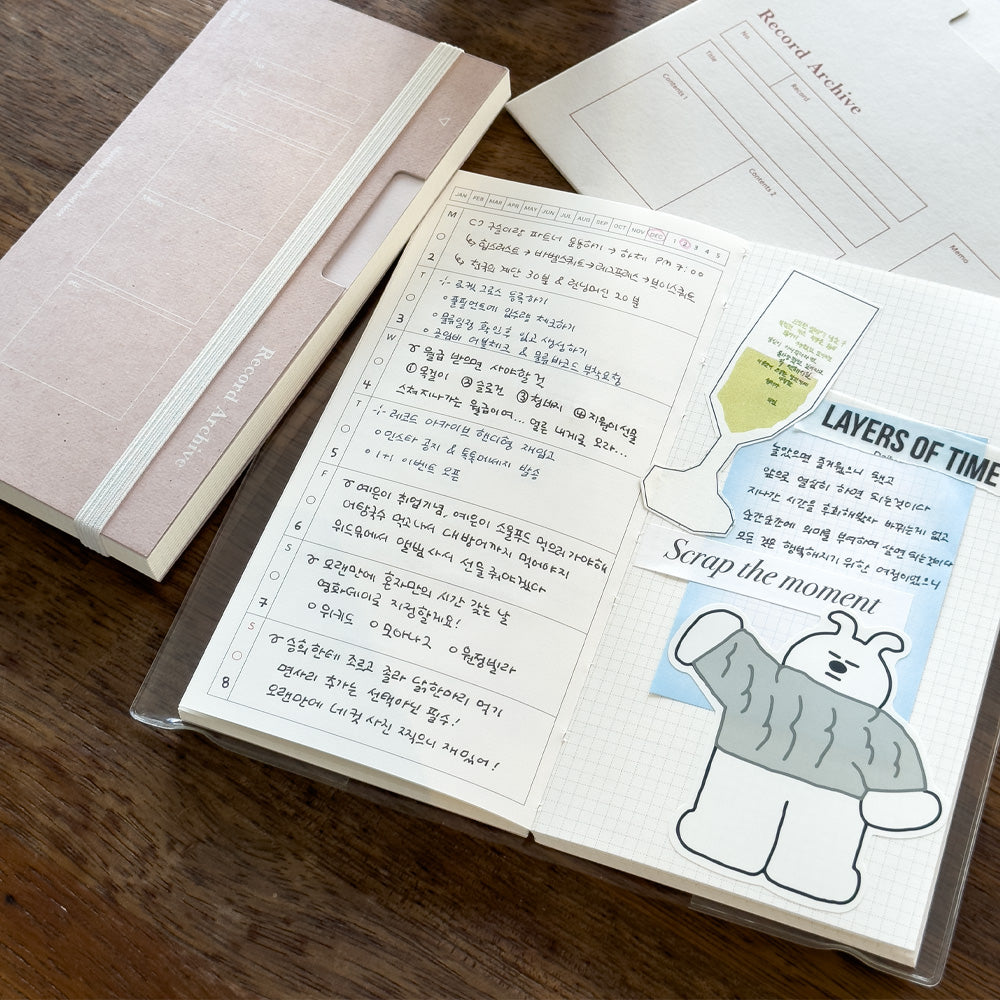 Record Archive
Record Archive
No.
Title
Record
Contents 1
Contents 2
Memo
JAN FEB MAR APR MAY JUN JUL AUG SEP OCT NOV DEC 1 2 3 4 5
M
2
파트너 운동하기 → 하체 PM 7:00
↳ 힙쓰러스트 → 바벨스쿼트 → 레그프레스 → 브이스쿼트
↳ 천국의 계단 30분 & 런닝머신 20분
T
3
로켓그로스 등록하기
입수량 체크하기
물류일정 확인 후 입고 생성하기
& 물류바코드 부착요청
W
4
월급 받으면 사야할 것
① 목걸이 ② 슬로건 ③ 청바지 ④ 지원이 선물
스쳐지나가는 월급이여... 얼른 내게로 오라...
T
5
레코드 아카이브 핸디형 재입고
인스타 공지 & 톡톡메세지 발송
1+1 이벤트 오픈
F
6
예은이 취업기념, 예은이 소울푸드 먹으러 가야해
어탕국수 먹고나서 대방어까지 먹여야지
위드뮤에서 앨범 사서 선물줘야겠다
S
7
오랜만에 혼자만의 시간 갖는 날
영화데이로 지정할게요!
위키드 모아나2 원정빌라
S
8
승희한테 조르고 졸라 닭한마리 먹기
면사리 추가는 선택아닌 필수!
오랜만에 네컷 사진 찍으니 재밌어!
LAYERS OF TIME
놀았으면 즐거웠으니 됐고
앞으로 열심히 하면 되는것이다
지나간 시간을 후회해봤자 바뀌는게 없고
순간순간에 의미를 부여하며 살면 되는것이다
모든 것은 행복해지기 위한 여정이었으니
Scrap the moment